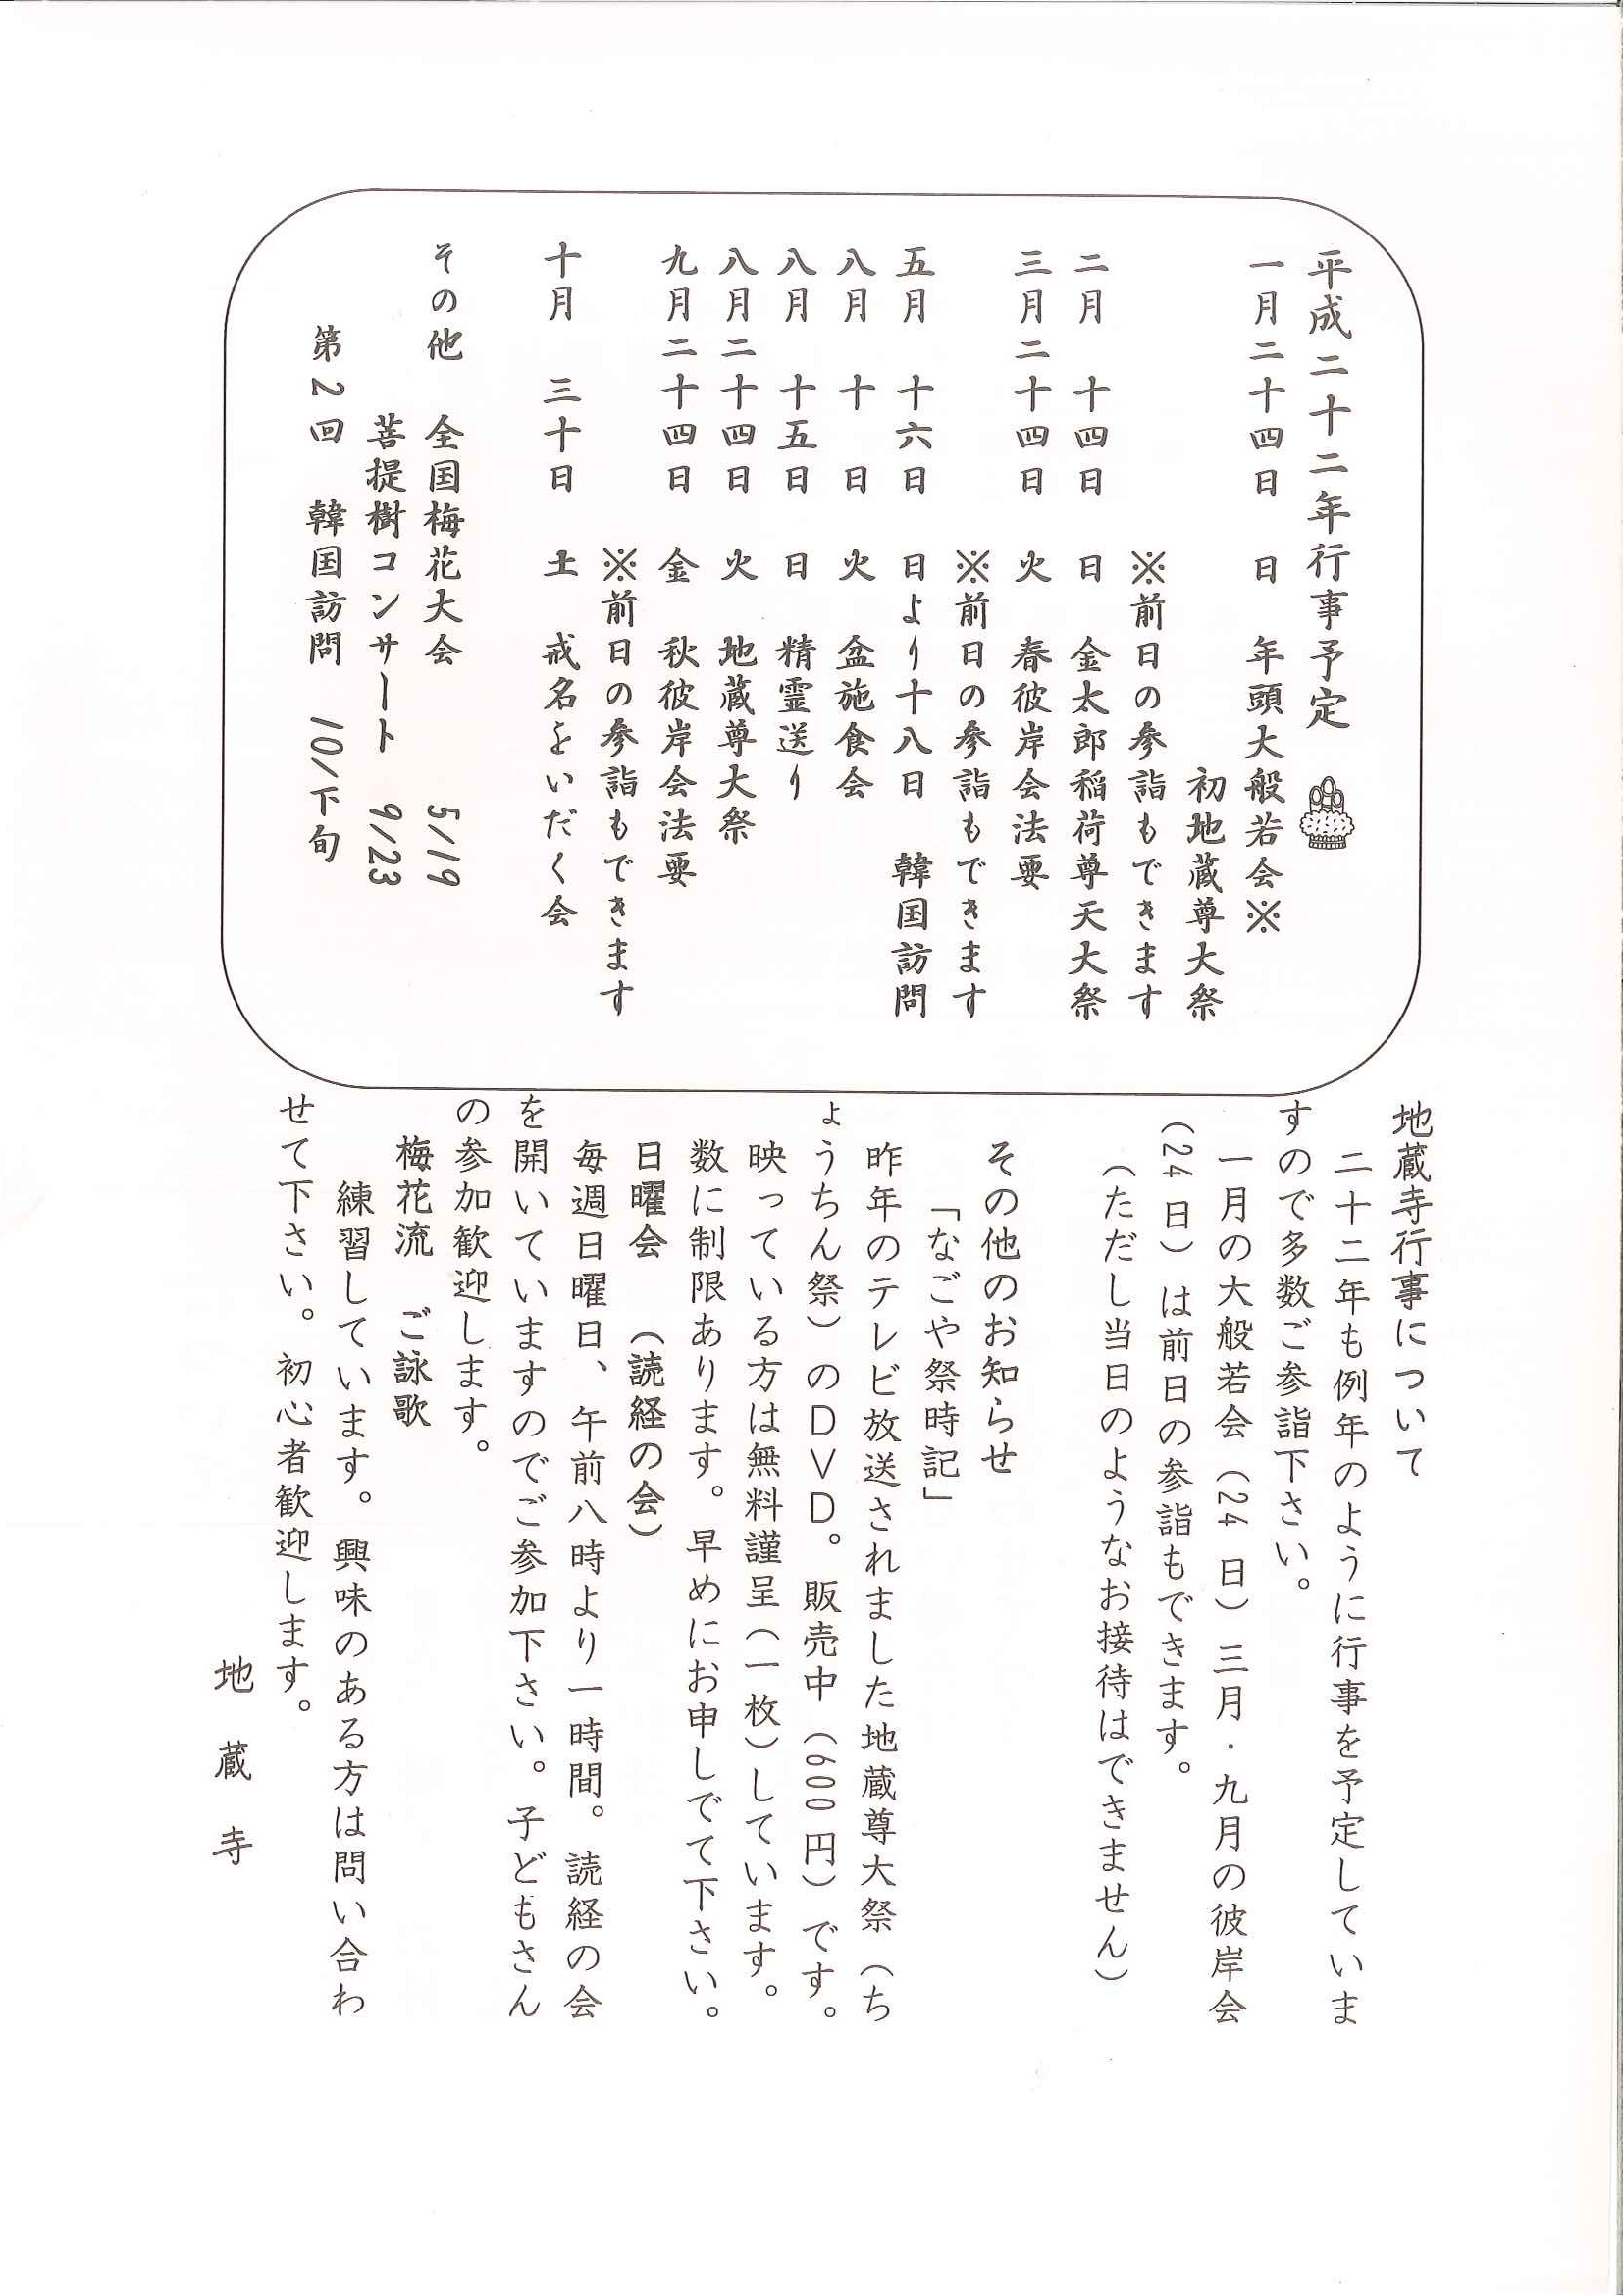 平成二十二年行事予定
一月二十四日　日　年頭大般若会※
初地蔵尊大祭
※前日の参詣もできます
二月　十四日　日　金太郎稲荷尊天大祭
三月二十四日　火　春彼岸会法要
※前日の参詣もできます
五月　十六日　日より十八日　韓国訪問
八月　十　日　火　盆施食会
八月　十五日　日　精霊送り
八月二十四日　火　地蔵尊大祭
九月二十四日　金　秋彼岸会法要
※前日の参詣もできます
十月　三十日　土　戒名をいだく会
その他　全国梅花大会　5/19
菩提樹コンサート　9/23
第２回　韓国訪問　10/下旬
地蔵寺行事について
二十二年も例年のように行事を予定していま
すので多数ご参詣下さい。
一月の大般若会（24 日）三月・九月の彼岸会
（24 日）は前日の参詣もできます。
（ただし当日のようなお接待はできません）
その他のお知らせ
「なごや祭時記」
昨年のテレビ放送されました地蔵尊大祭（ち
ょうちん祭）のＤＶＤ。販売中（600 円）です。
映っている方は無料謹呈（一枚）しています。
数に制限あります。早めにお申しでて下さい。
日曜会　（読経の会）
毎週日曜日、午前八時より一時間。読経の会
を開いていますのでご参加下さい。子どもさん
の参加歓迎します。
梅花流　ご詠歌
練習しています。興味のある方は問い合わ
せて下さい。初心者歓迎します。
地　蔵　寺